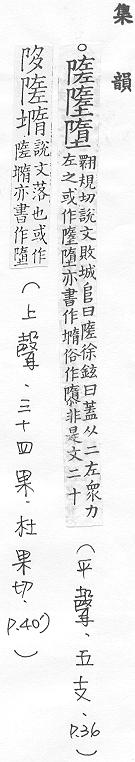 集韻
。隓𡐦墮翾規切說文敗城𨸏曰隓徐鉉曰蓋从二左眾力
左之或作𡐦墮亦書作墯俗作隳非是文二十
(平聲、五支、p.36)
陊隓墯說文落也或作
隓墯亦書作墮
(上聲、三十四果、杜果切、p.40)